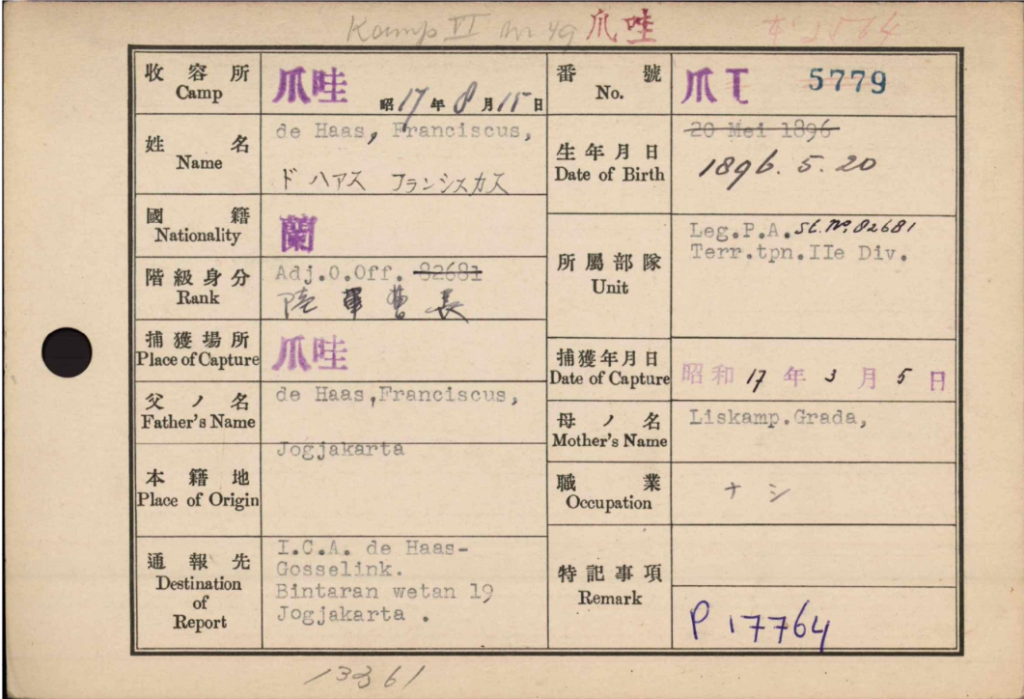 Kamp VI 爪哇
収容所 Camp 爪哇 昭17年8月15日
番號 No. 爪 5779
姓名 Name de Haas, Franciscus,
ド ハアス フランシスカス
生年月日 Date of Birth 20 Mei 1896
1896. 5. 20
國籍 Nationality 蘭
階級身分 Rank Adj.O.Off. 82681
陸軍曹長
所屬部隊 Unit Leg.P.A. St. No. 82681
Terr.tpn.IIe Div.
捕獲場所 Place of Capture 爪哇
捕獲年月日 Date of Capture 昭和17年3月5日
父ノ名 Father's Name de Haas,Franciscus,
母ノ名 Mother's Name Liskamp.Grada,
本籍地 Place of Origin Jogjakarta
職業 Occupation ナシ
通報先 Destination of Report I.C.A. de Haas-
Gosselink.
Bintaran wetan 19
Jogjakarta .
特記事項 Remark
P 17764
13361